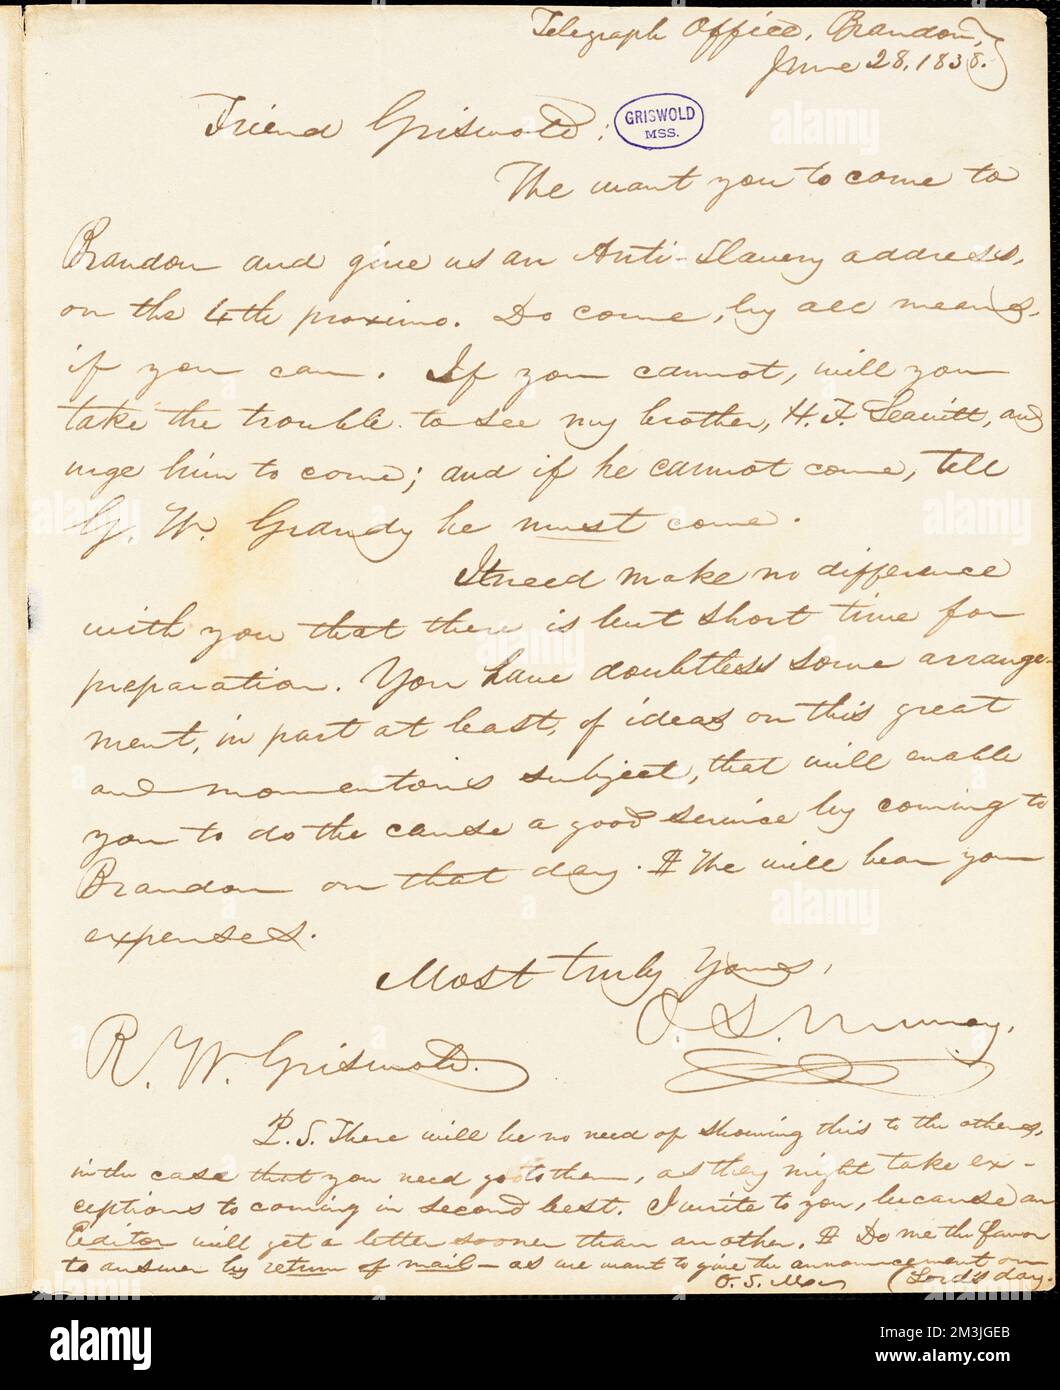 Telegraph Office, Brandon,
June 28, 1838.
Friend Griswold:
GRISWOLD
MSS.
We want you to come to
Brandon and give us an Anti-Slavery address,
on the 4th proximo. Do come, by all means,
if you can. If you cannot, will you
take the trouble to see my brother, H. F. Leavitt, and
urge him to come; and if he cannot come, tell
G. W. Grandy he must come.
It need make no difference
with you that there is but short time for
preparation. You have doubtless some arrange-
ment, in part at least, of ideas on this great
and momentous subject, that will enable
you to do the cause a good service by coming to
Brandon on that day. We will bear your
expenses.
Most truly yours,
O. S. Murray.
R. W. Griswold.
P.S. There will be no need of showing this to the others,
in the case that you need go to them, as they might take ex-
ceptions to coming in second best. I write to you, because an
Editor will get a letter sooner than another. Do me the favor
to answer by return of mail — as we want to give the announcement on
O. S. M (Lord's day.
alamy
Image ID: 2M3JGEB
www.alamy.com